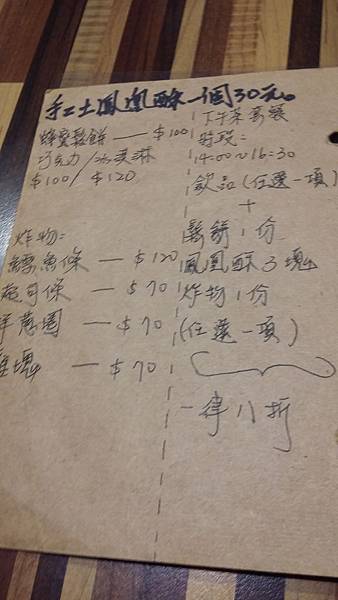 手工土鳳凰酥一個30元。
蜂蜜鬆餅 — $100
巧克力/冰淇淋
$100/ $120
炸物:
鱈魚條 — $120
起司條 — $70
洋蔥圈 — $70
雞塊 — $70
下午茶套餐
時段:
14:00~16:30
飲品(任選一項)
+
鬆餅1份
鳳凰酥3塊
炸物1份
(任選一項)
一律八折